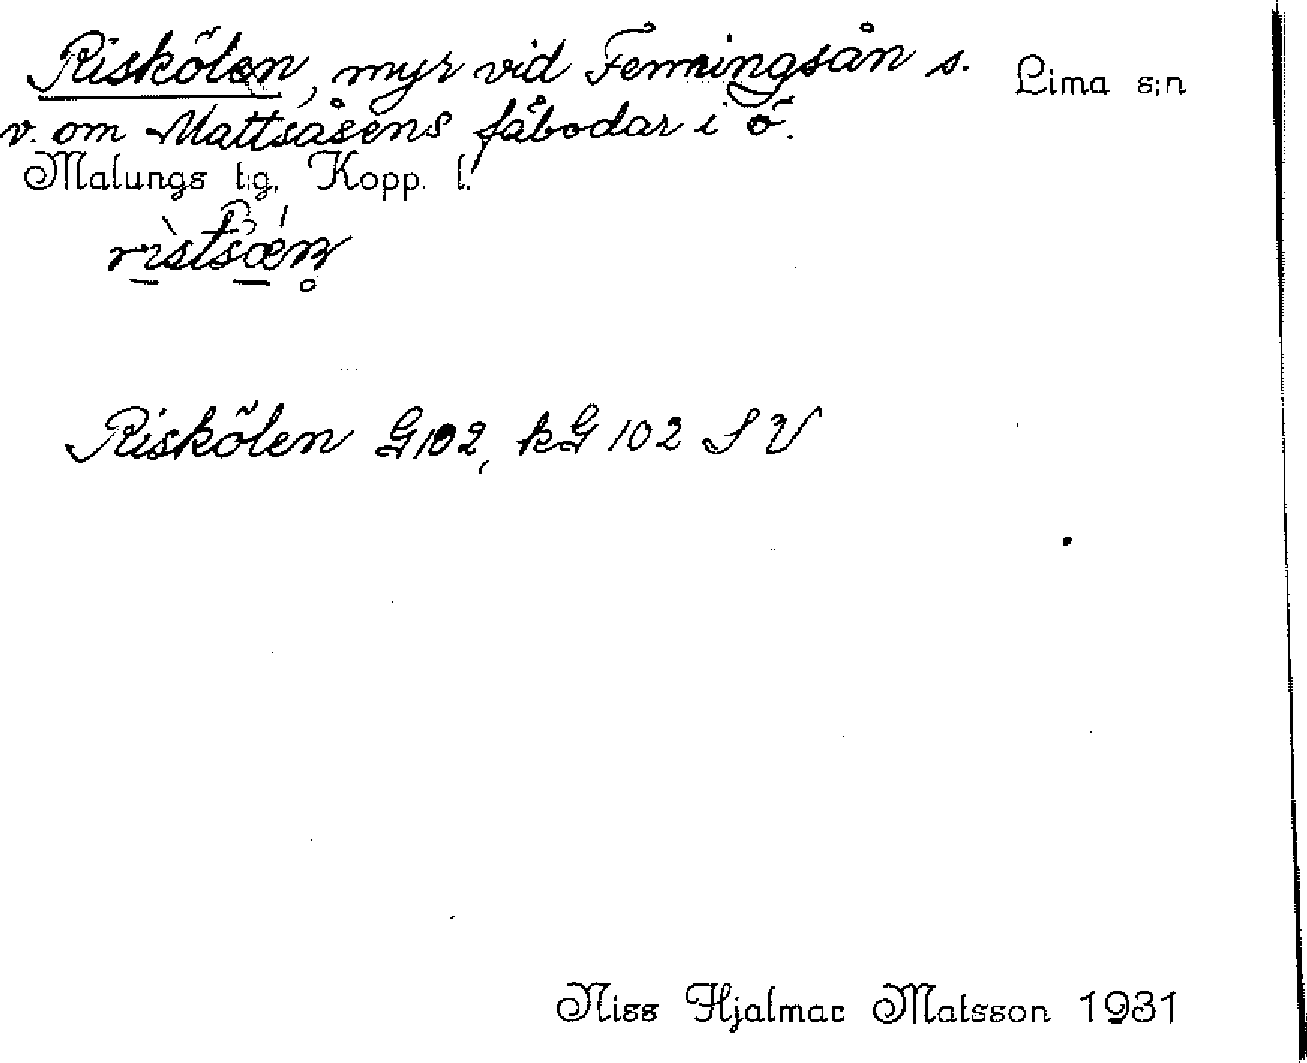 Riskölen, myr vid Femmingsån s. Lima s:n
v. om Mattsåsens fäbodar i ö.
Malungs t:g. Kopp. l.
Riskölen G102, kG 102 SV
Niss Hjalmar Matsson 1931